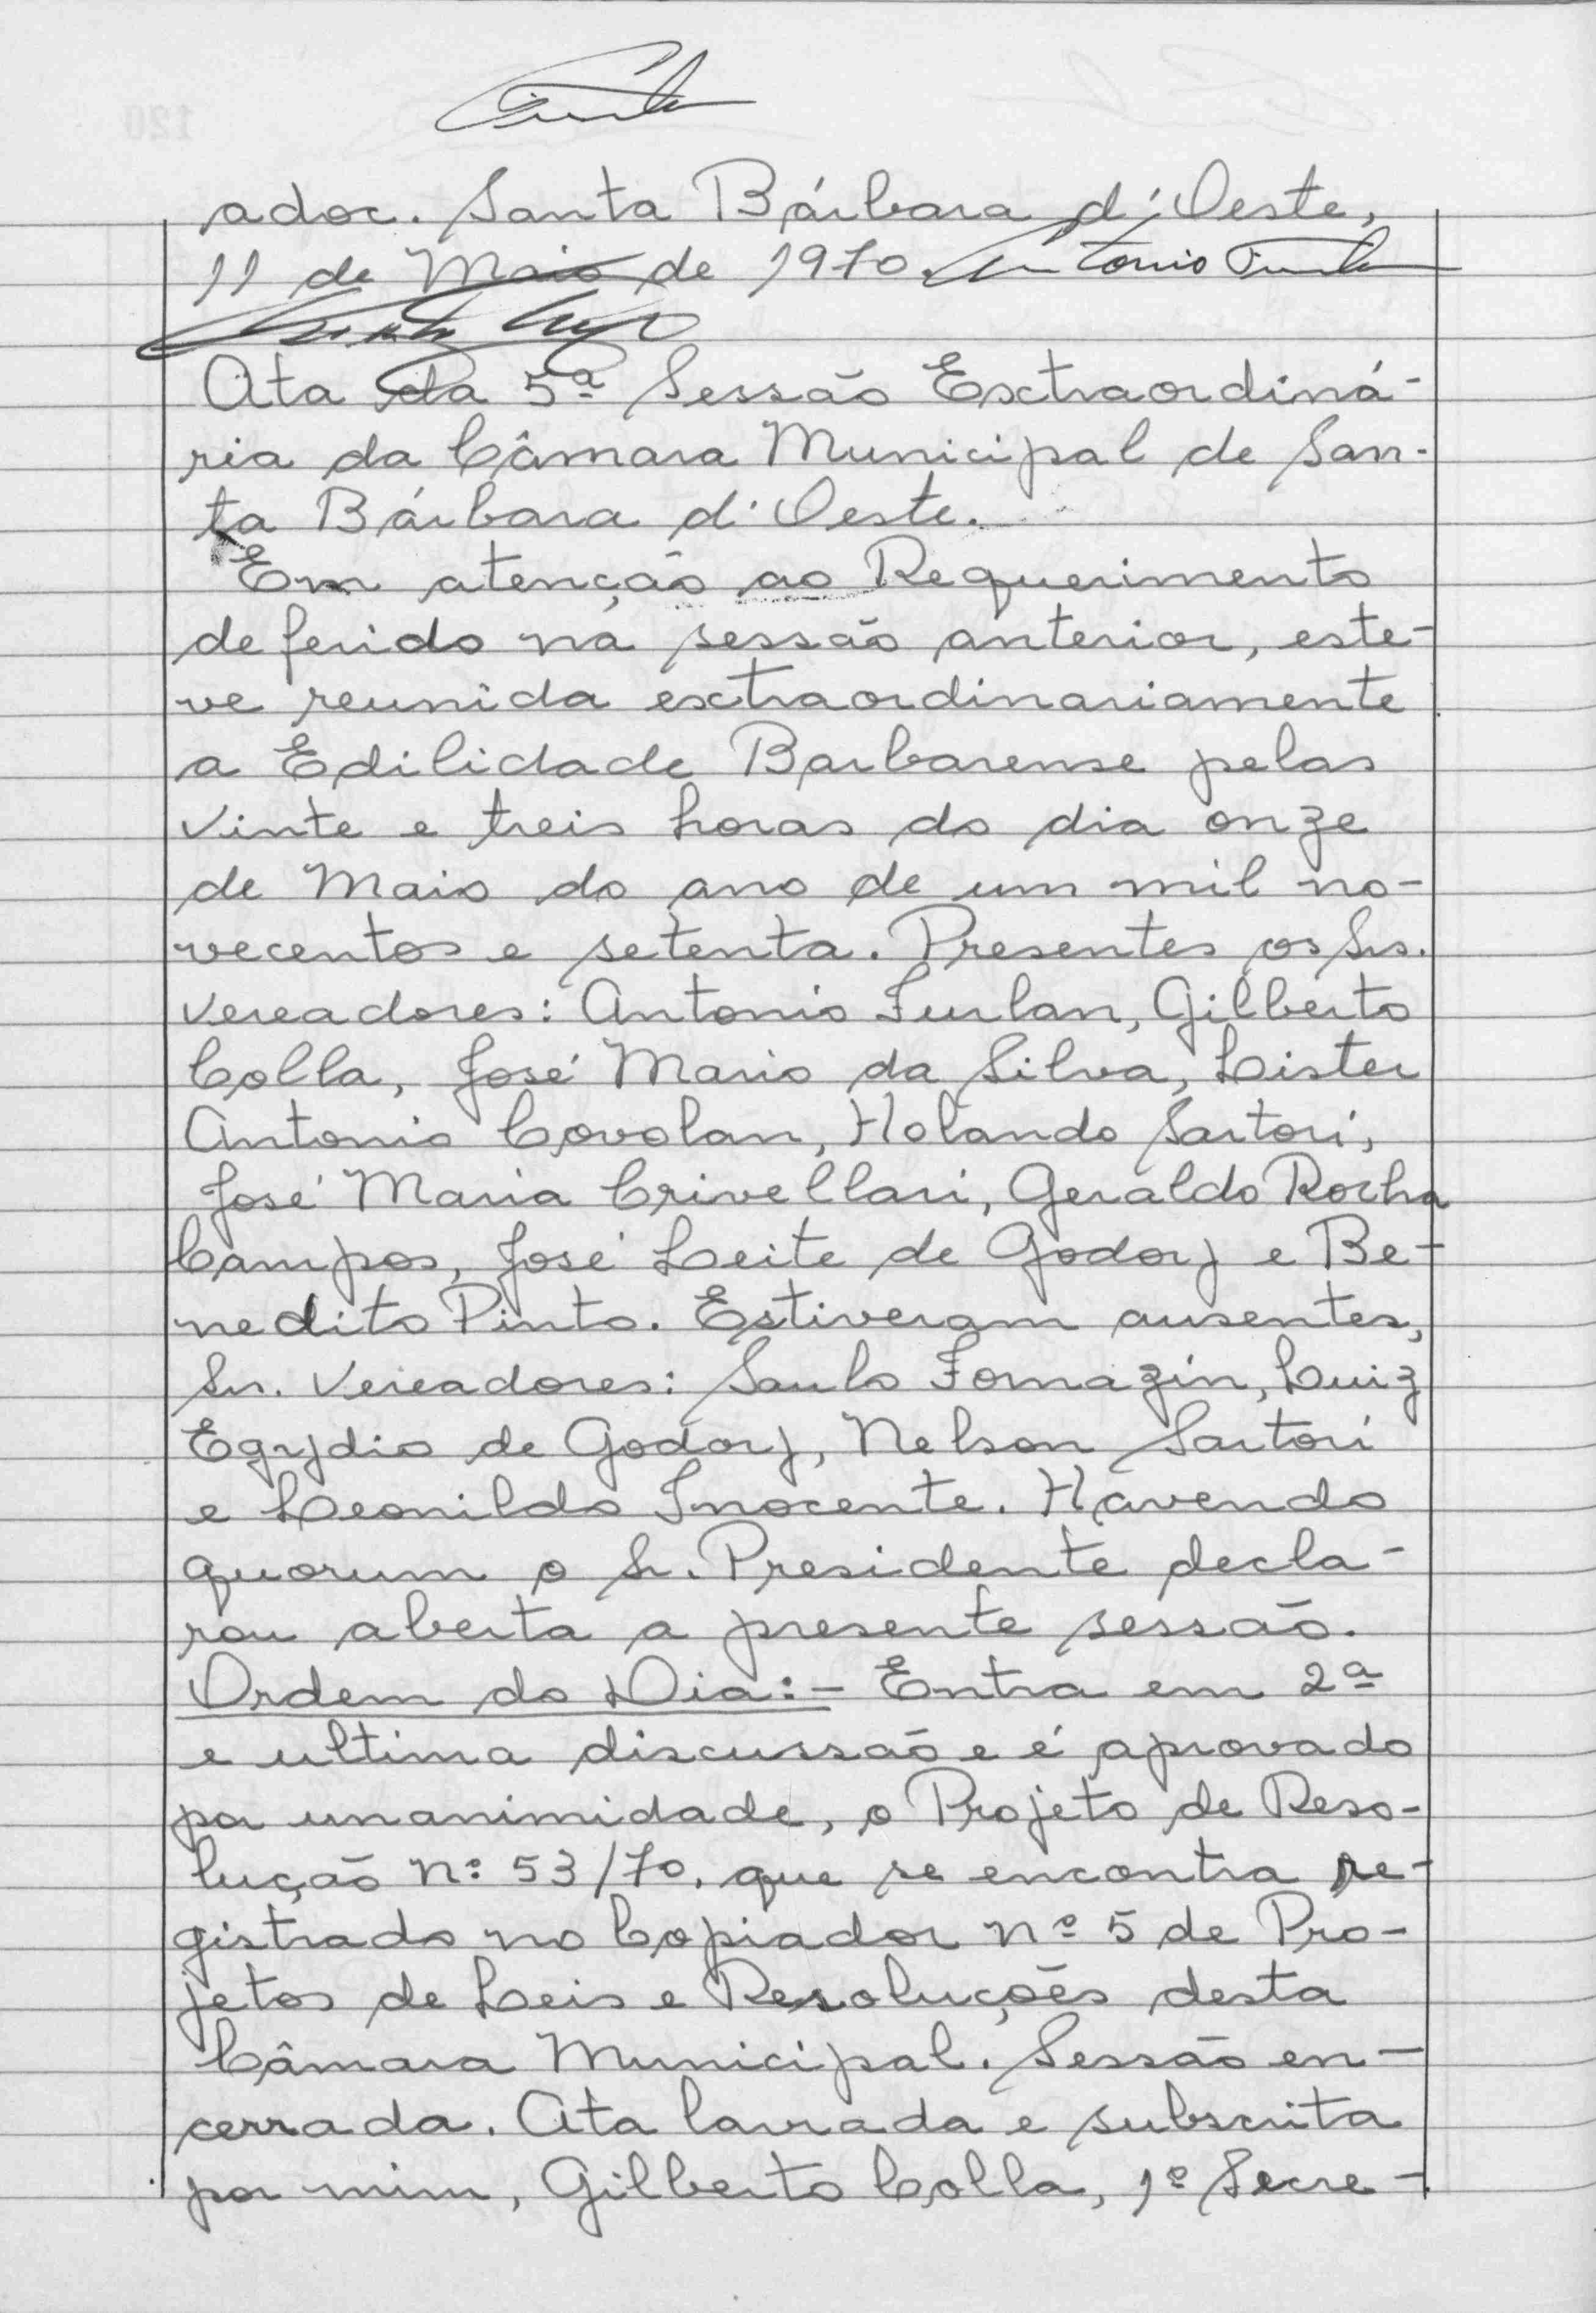 adoc. Santa Bárbara d'Oeste,
11 de Maio de 1970. Antonio Furlan
Ata da 5ª Sessão Extraordiná-
ria da Câmara Municipal de San-
ta Bárbara d'Oeste.
Em atenção ao Requerimento
deferido na sessão anterior, este-
ve reunida extraordinariamente
a Edilidade Barbarense pelas
vinte e treis horas do dia onze
de Maio do ano de um mil no-
vecentos e setenta. Presentes os Srs.
Vereadores: Antonio Furlan, Gilberto
Colla, José Mario da Silva, Lister
Antonio Covolan, Holando Sartori,
José Maria Crivellari, Geraldo Rocha
Campos, José Leite de Godoy e Be-
nedito Pinto. Estiveram ausentes,
Srs. Vereadores: Saulo Fornazin, Luiz
Egydio de Godoy, Nelson Sartori
e Leonildo Inocente. Havendo
quorum o Sr. Presidente decla-
rou aberta a presente sessão.
Ordem do Dia:- Entra em 2ª
e ultima discussão e é aprovado
por unanimidade, o Projeto de Reso-
lução nº 53/70, que se encontra re-
gistrado no Copiador nº 5 de Pro-
jetos de Leis e Resoluções desta
Câmara Municipal. Sessão en-
cerrada. Ata lavrada e subscrita
por mim, Gilberto Colla, 1º Secre-